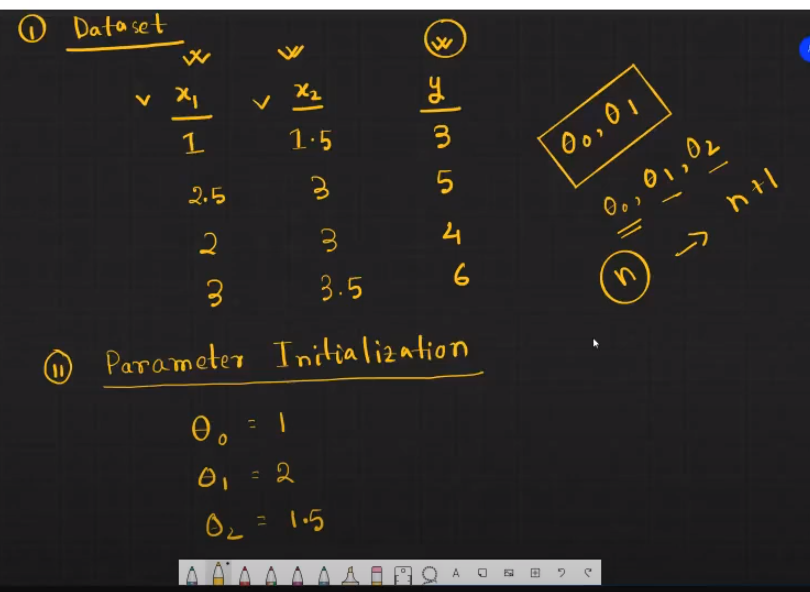 ① Dataset
x₁ x₂ y
1 1.5 3
2.5 3 5
2 3 4
3 3.5 6
θ₀, θ₁
θ₀, θ₁, θ₂
n → n+1
⑪ Parameter Initialization
θ₀ = 1
θ₁ = 2
θ₂ = 1.5
A